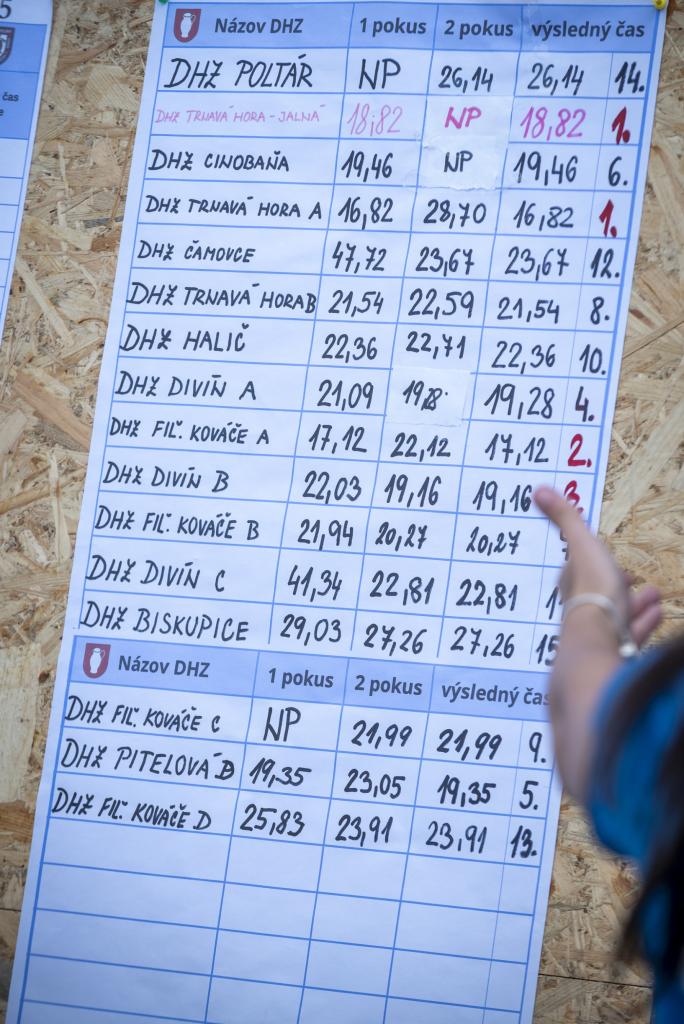 5
čas
Názov DHZ 1 pokus 2 pokus výsledný čas
DHZ POLTÁR NP 26,14 26,14 14.
DHZ TRNAVÁ HORA - JALNÁ 18,82 NP 18,82 1.
DHZ CINOBAŇA 19,46 NP 19,46 6.
DHZ TRNAVÁ HORA A 16,82 28,70 16,82 1.
DHZ ČAMOVCE 47,72 23,67 23,67 12.
DHZ TRNAVÁ HORA B 21,54 22,59 21,54 8.
DHZ HALIČ 22,36 22,71 22,36 10.
DHZ DIVÍN A 21,09 19,28 19,28 4.
DHZ FIĽ. KOVÁČE A 17,12 22,12 17,12 2.
DHZ DIVÍN B 22,03 19,16 19,16 3.
DHZ FIĽ. KOVÁČE B 21,94 20,27 20,27
DHZ DIVÍN C 41,34 22,81 22,81
DHZ BISKUPICE 29,03 27,26 27,26 15
Názov DHZ 1 pokus 2 pokus výsledný čas
DHZ FIĽ. KOVÁČE C NP 21,99 21,99 9.
DHZ PITELOVÁ B 19,35 23,05 19,35 5.
DHZ FIĽ. KOVÁČE D 25,83 23,91 23,91 13.